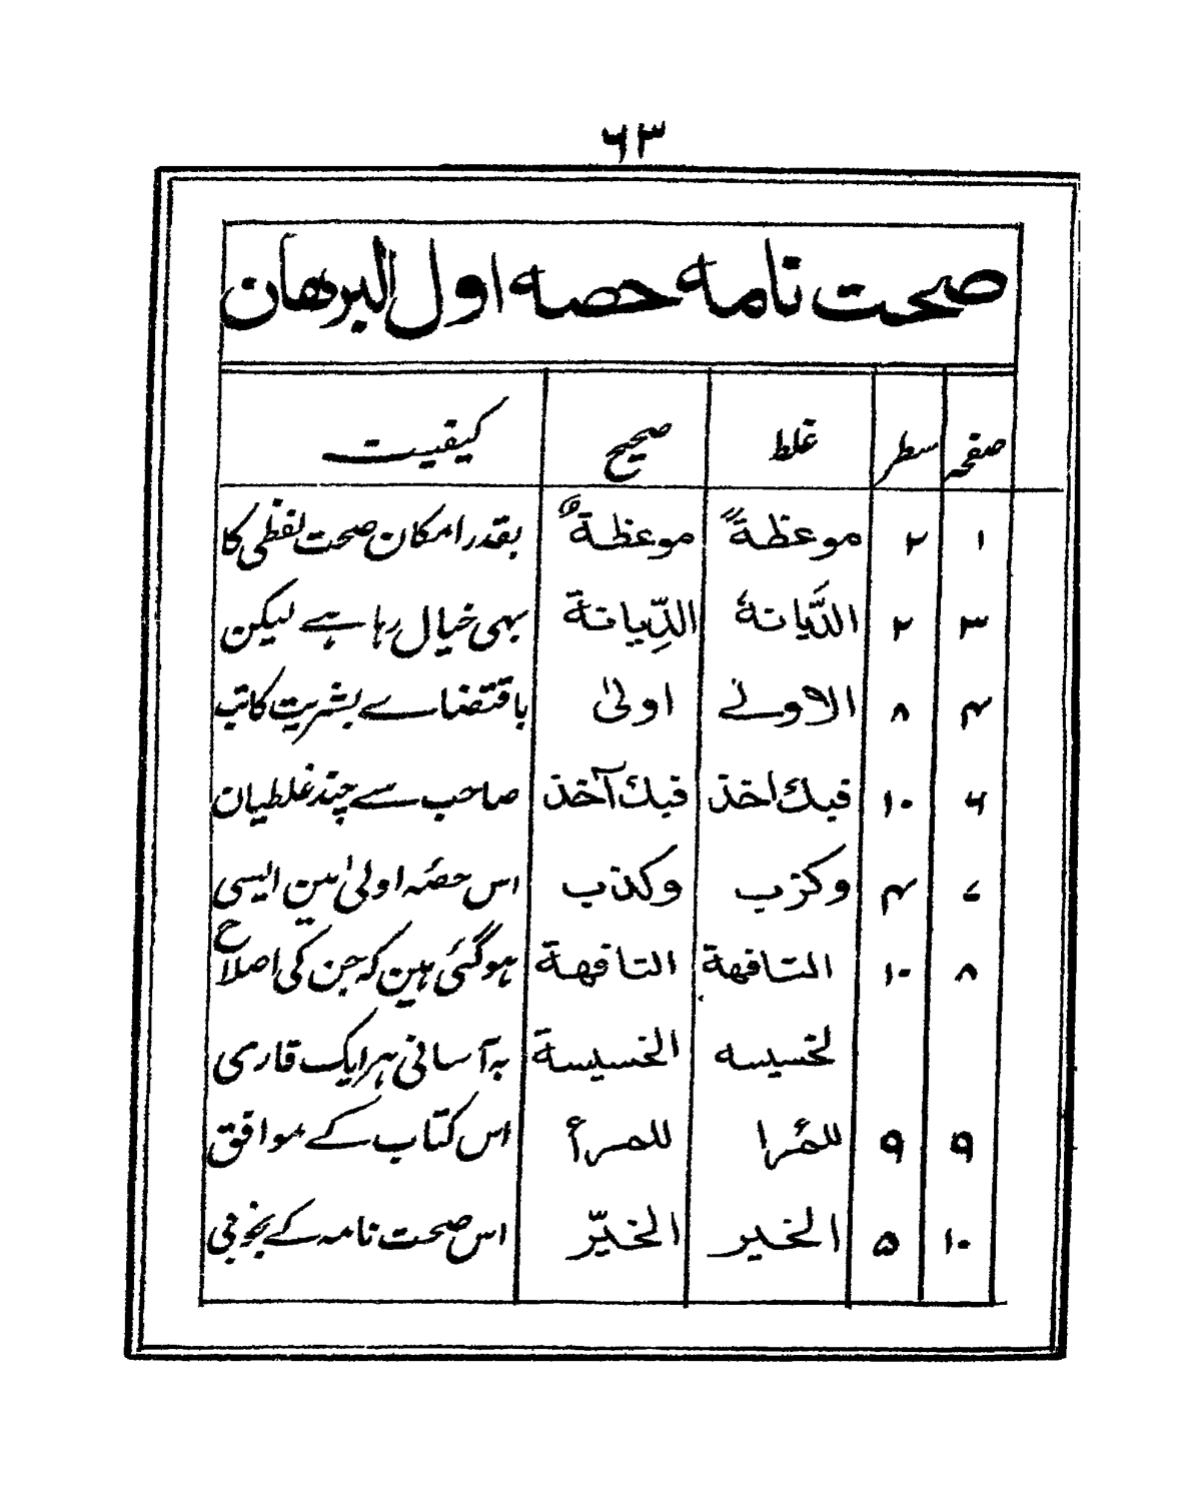 ۶۳
صحت نامہ حصہ اول البرھان
صفحہ سطر غلط صحیح کیفیت
۱ ۲ موعظةً موعظةٌ بقدر امکان صحت لفظی کا
۳ ۲ الدَّیانةُ الدِّیانة بھی خیال رہا ہے لیکن
۴ ۸ الاولے اولیٰ باقتضاے بشریت کاتب
۶ ۱۰ فبك اخذ فبك آخذ صاحب سے چند غلطیان
۷ ۴ وکزب وکذب اس حصّہ اولیٰ مین ایسی
۸ ۱۰ التافھة التافھة ہوگئی ہین کہ جن کی اصلاح
لخسیسه الخسیسة بہ آسانی ہر ایک قاری
۹ ۹ للمُرا للمرأ اس کتاب کے موافق
۱۰ ۵ الخیر الخیّر اس صحت نامہ کے بخوبی